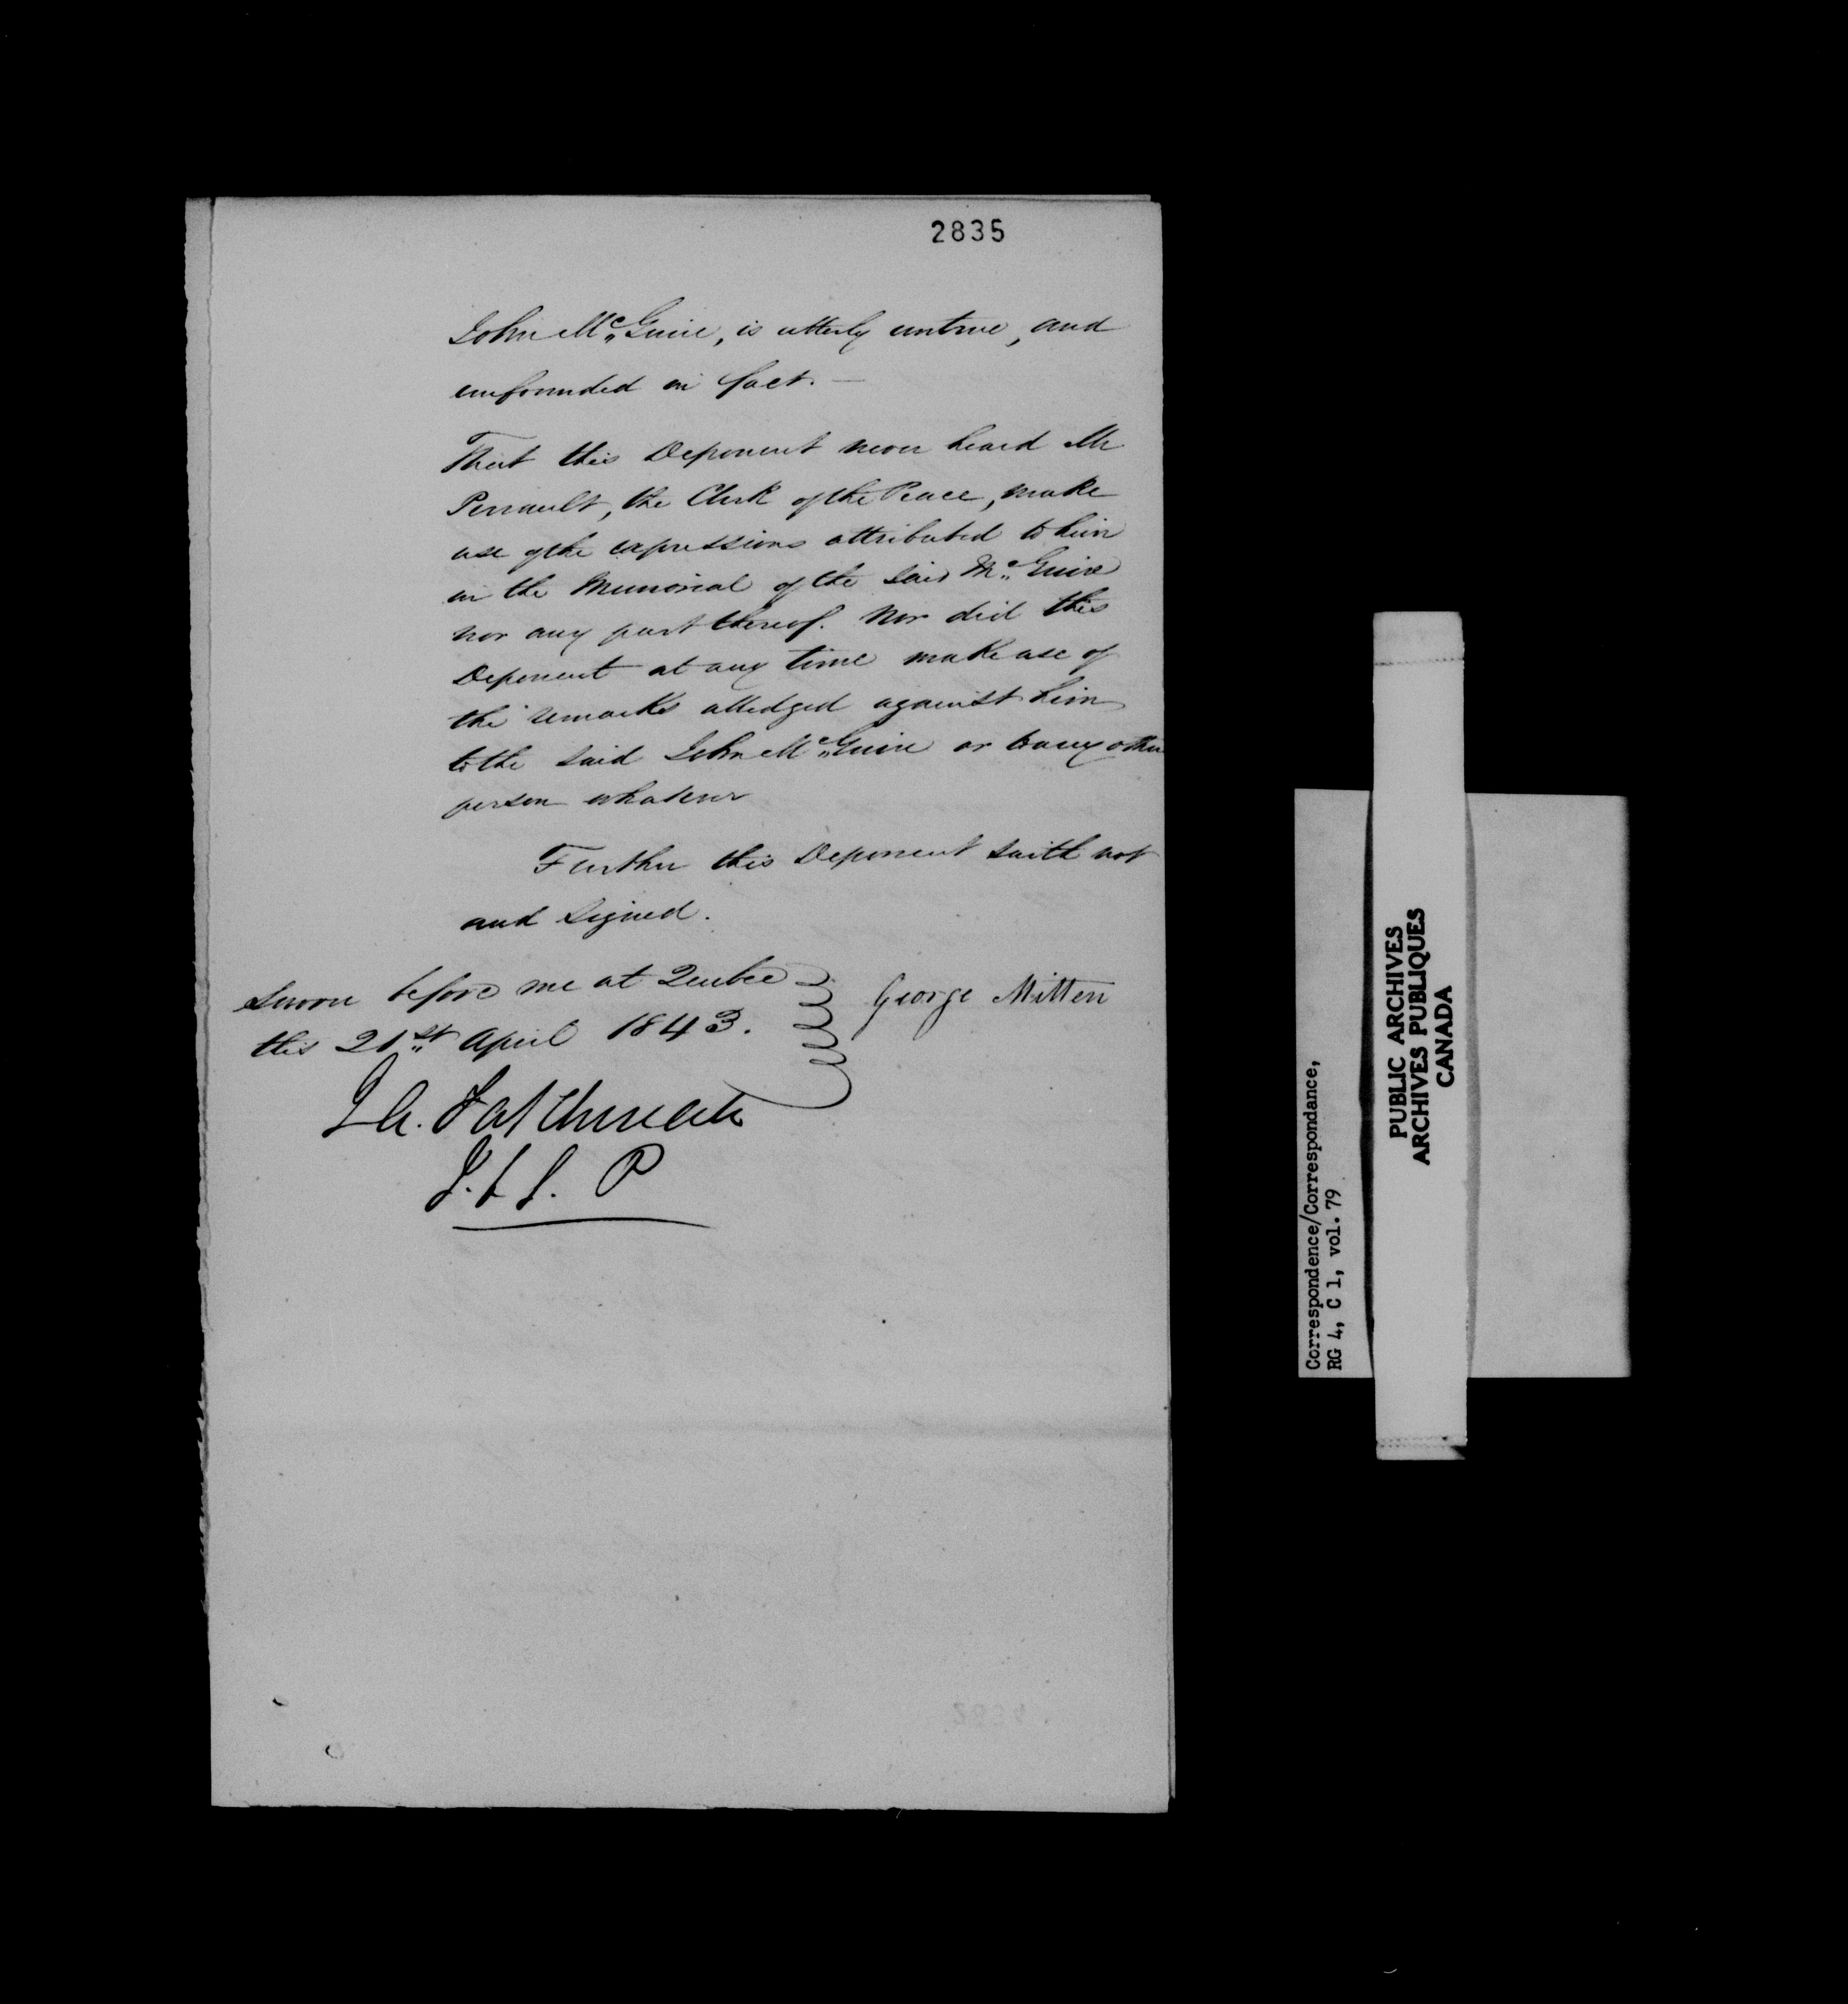 2835
John McGuire, is utterly untrue, and
unfounded in fact. —
That this Deponent never heard Mr
Perrault, the Clerk of the Peace, make
use of the expressions attributed to him
in the Memorial of the said McGuire
nor any part thereof. Nor did this
Deponent at any time make use of
the remarks alledged against him
to the said John McGuire or to any other
person whatever
Further this Deponent saith not
and signed.
Sworn before me at Quebec
this 21st April 1843.
George Mitten
J. P
Correspondence/Correspondance,
RG 4, C 1, vol. 79
PUBLIC ARCHIVES
ARCHIVES PUBLIQUES
CANADA